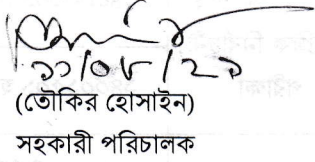 ১১/০৮/২১
(তৌকির হোসাইন)
সহকারী পরিচালক